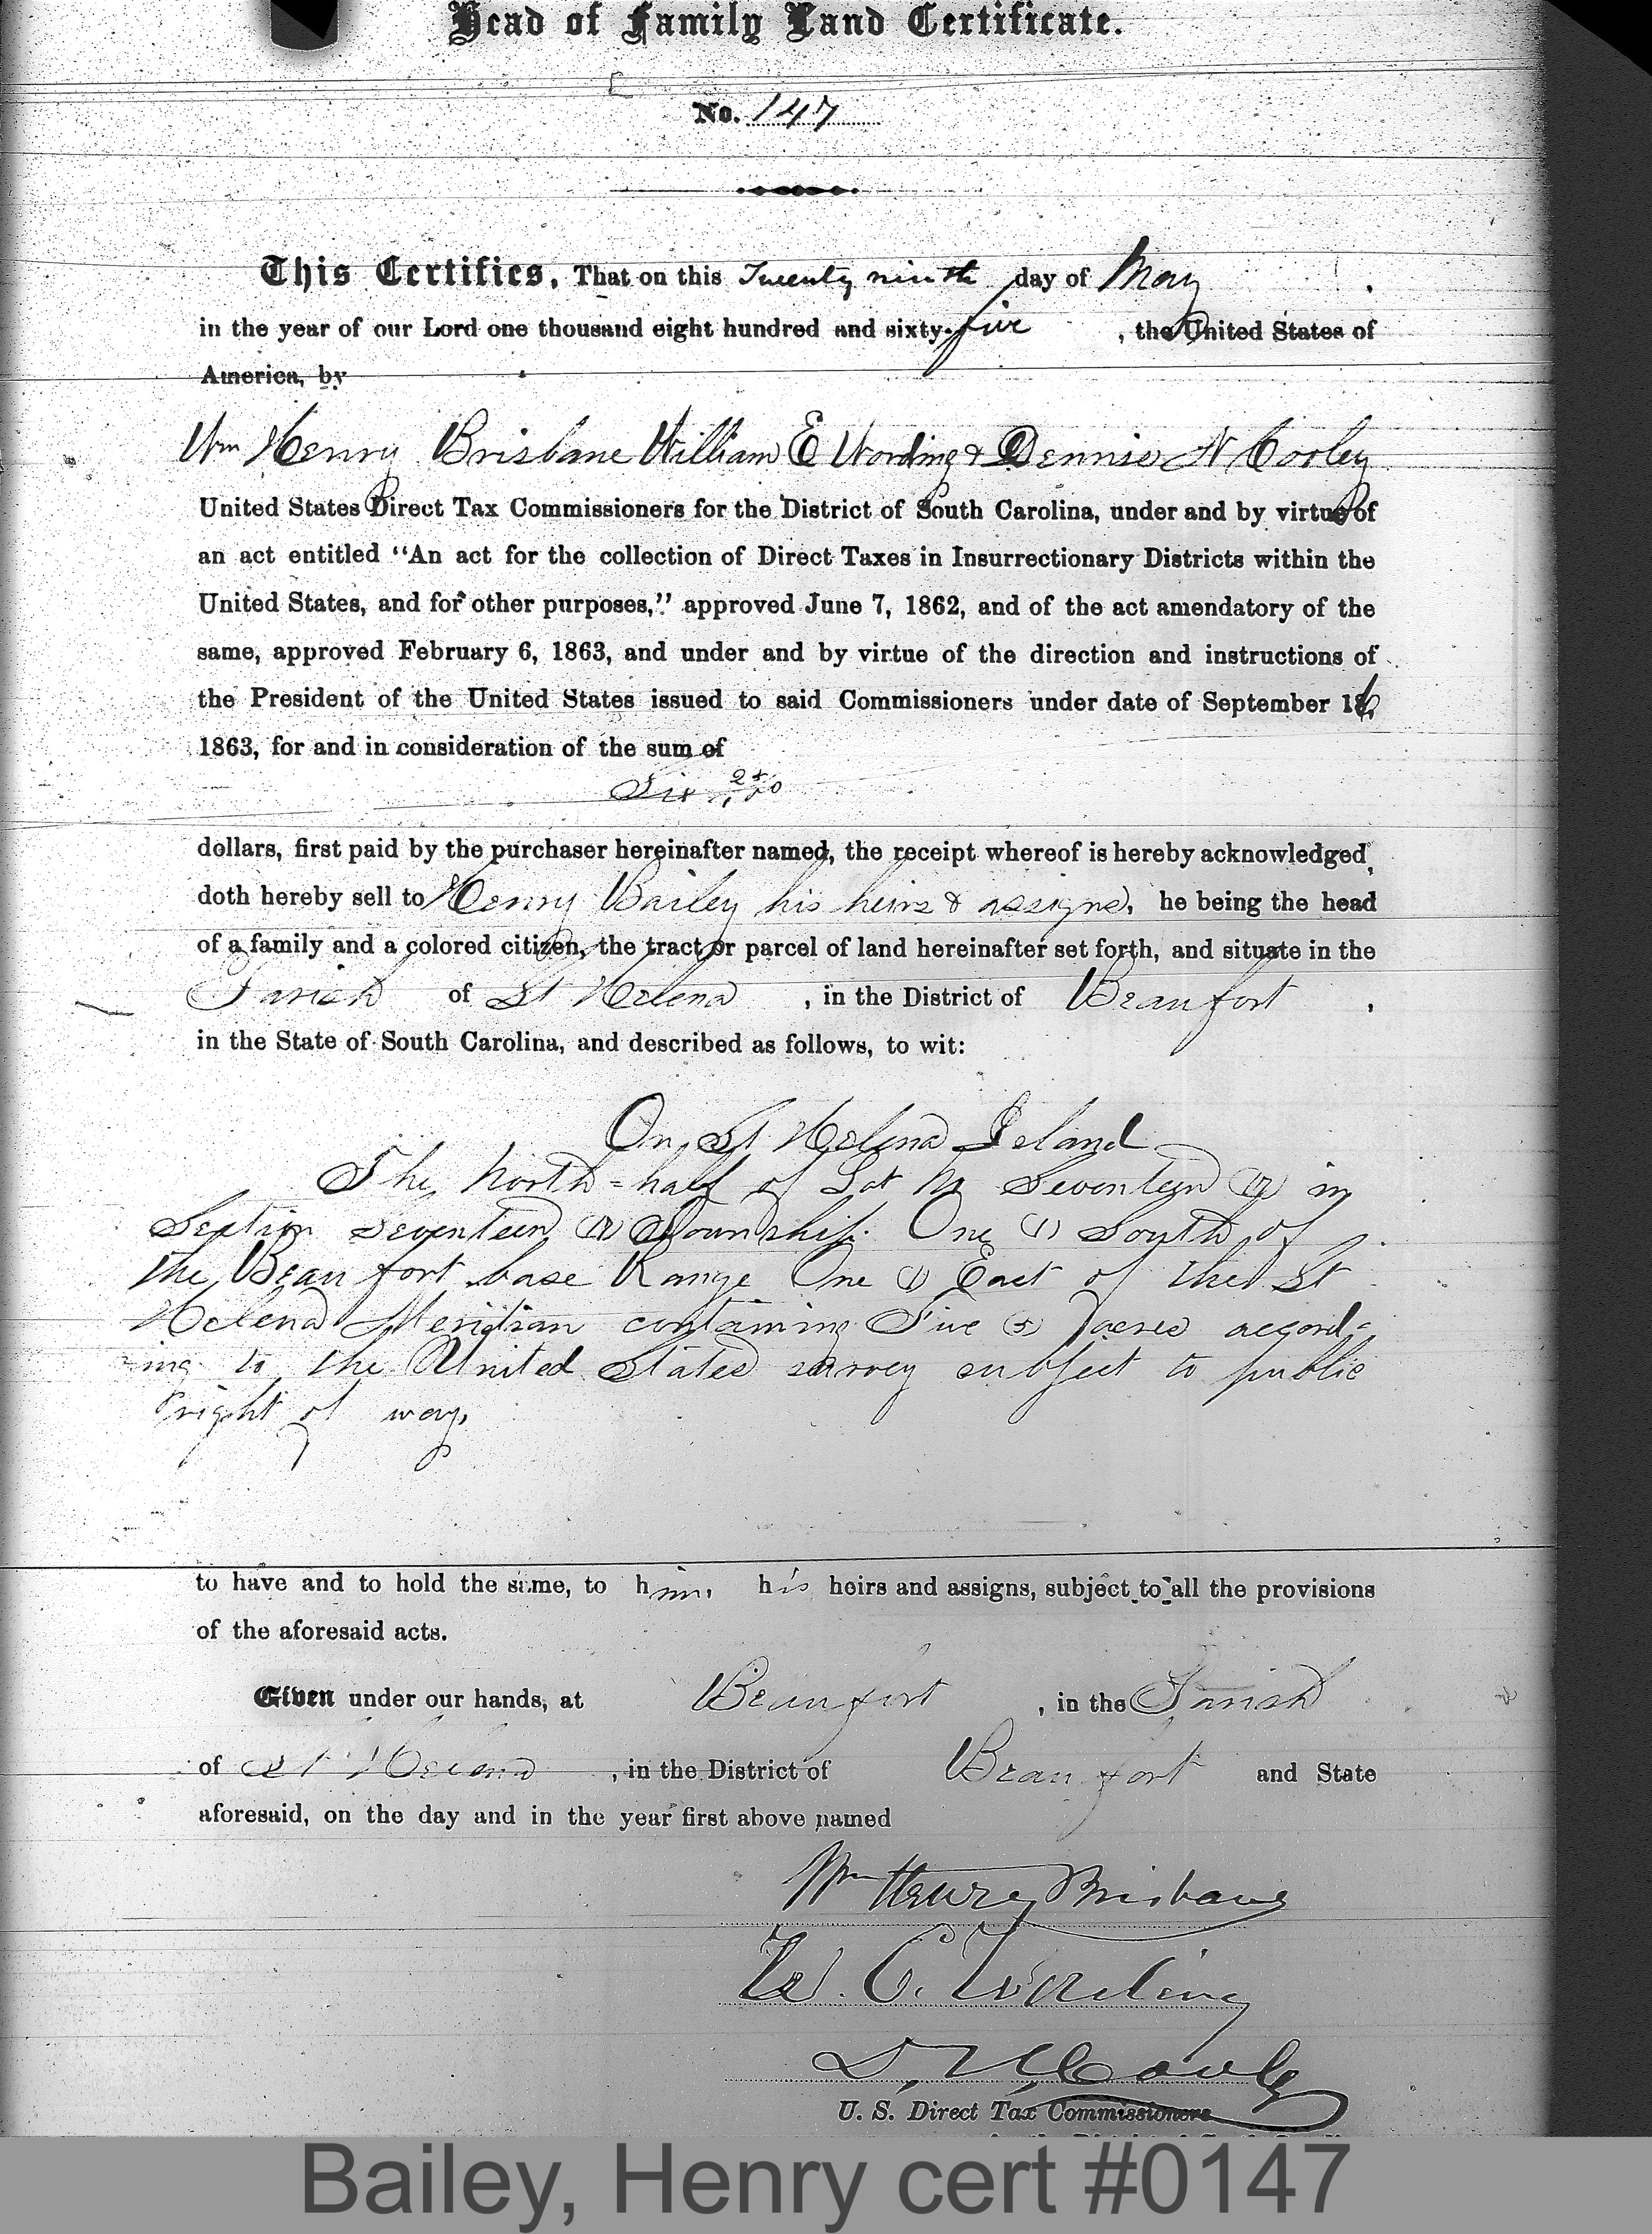 Head of Family Land Certificate.
No. 147
This Certifies, That on this Twenty ninth day of May
in the year of our Lord one thousand eight hundred and sixty-five , the United States of
America, by
Wm Henry Brisbane William E Wording & Dennis N Cooley
United States Direct Tax Commissioners for the District of South Carolina, under and by virtue of
an act entitled "An act for the collection of Direct Taxes in Insurrectionary Districts within the
United States, and for other purposes," approved June 7, 1862, and of the act amendatory of the
same, approved February 6, 1863, and under and by virtue of the direction and instructions of
the President of the United States issued to said Commissioners under date of September 16,
1863, for and in consideration of the sum of
Six 25/100
dollars, first paid by the purchaser hereinafter named, the receipt whereof is hereby acknowledged,
doth hereby sell to Henry Bailey his heirs & assigns, he being the head
of a family and a colored citizen, the tract or parcel of land hereinafter set forth, and situate in the
Parish of St Helena , in the District of Beaufort ,
in the State of South Carolina, and described as follows, to wit:
On St Helena Island
The North-half of Lot No Seventeen (17) in
Section Seventeen (17) Township One (1) South of
the Beaufort base Range One (1) East of the St
Helena Meridian containing Five (5) Acres accord-
ing to the United States survey subject to public
right of way,
to have and to hold the same, to him, his heirs and assigns, subject to all the provisions
of the aforesaid acts.
Given under our hands, at Beaufort , in the Parish
of St Helena , in the District of Beaufort and State
aforesaid, on the day and in the year first above named
Wm Henry Brisbane
W. E. Wording
D. N. Cooley
U. S. Direct Tax Commissioners
Bailey, Henry cert #0147